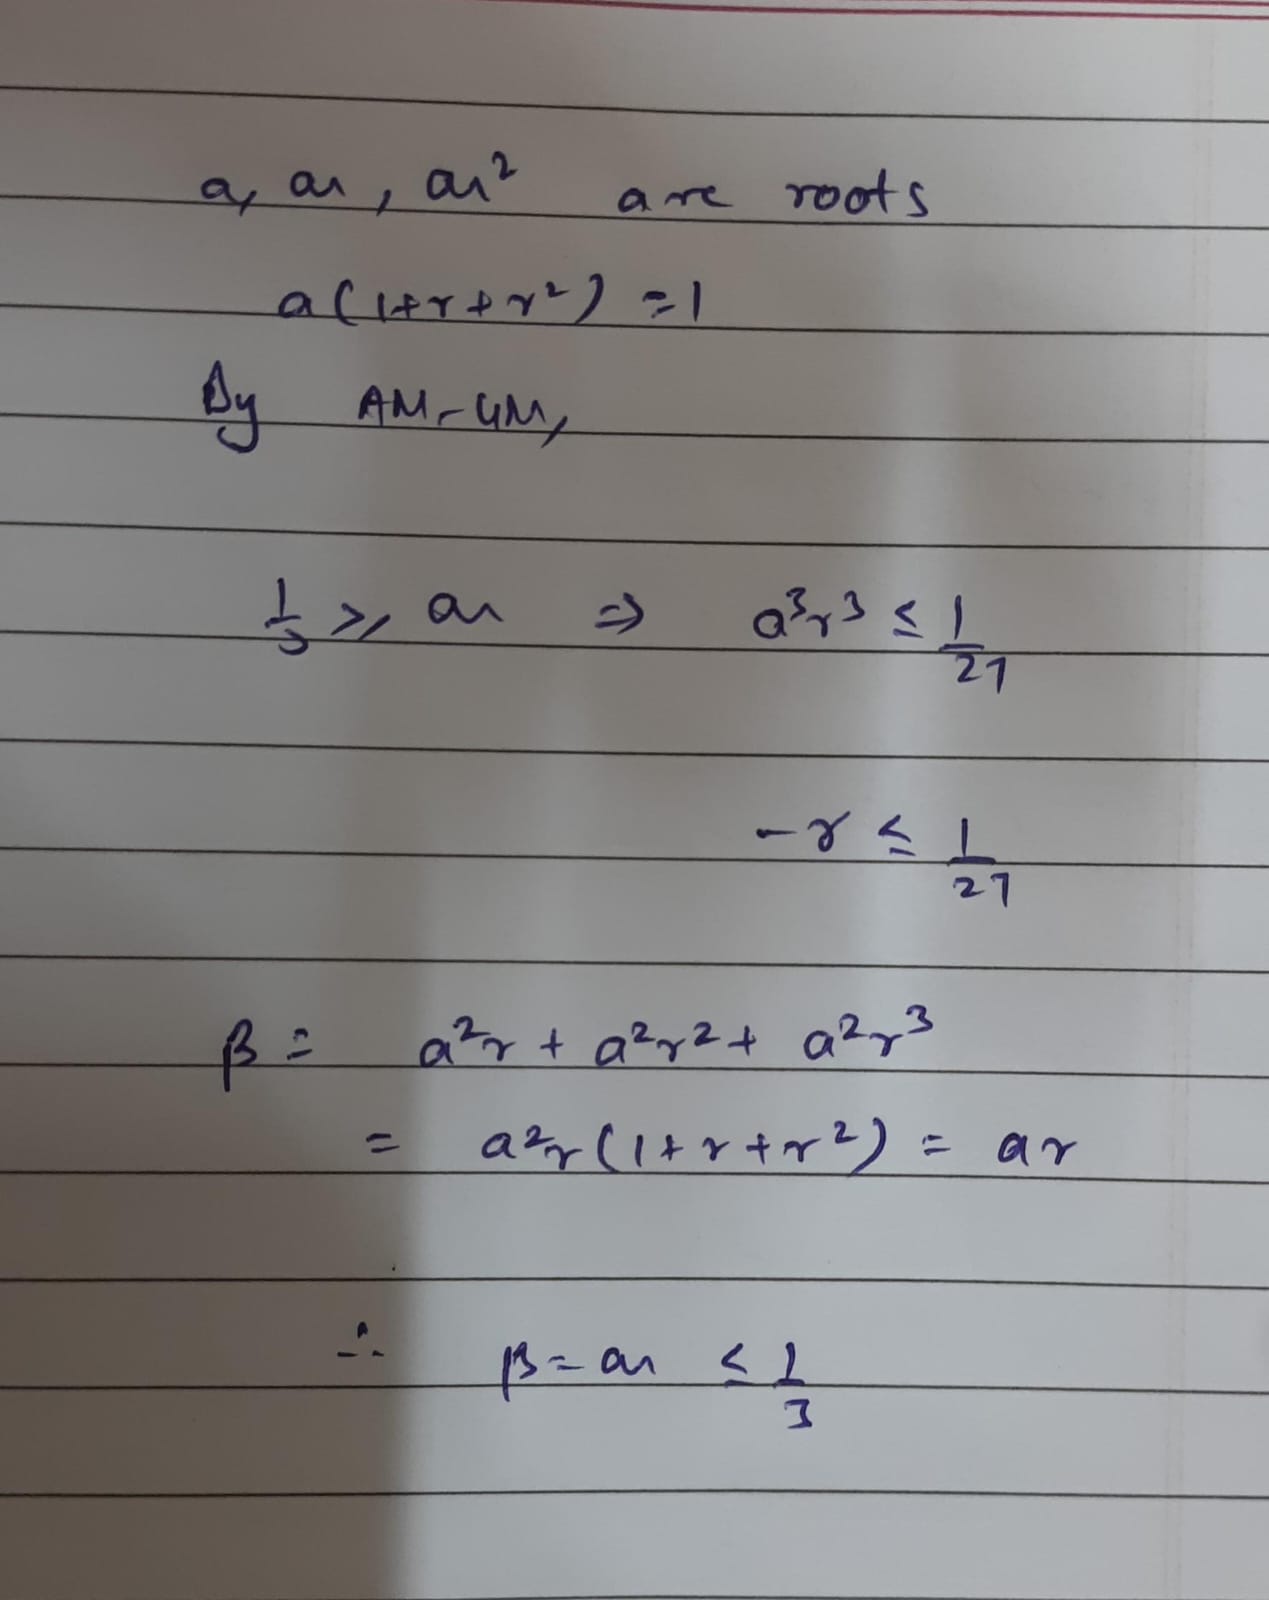 a, ar, ar² are roots
a(1+r+r²) = 1
By AM-GM,
1/3 ≥ ar ⇒ a³r³ ≤ 1/27
-γ ≤ 1/27
β = a²r + a²r² + a²r³
= a²r(1+r+r²) = ar
∴ β = ar ≤ 1/3